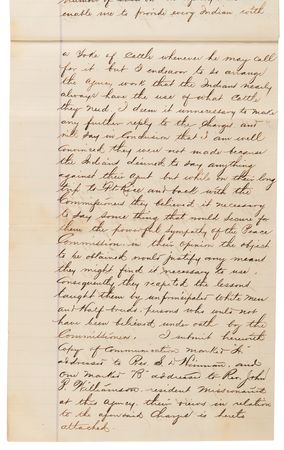 enable me to provide every Indian with
a Yoke of Cattle whenever he may call
for it but I endeavor to so arrange
the Agency work that the Indians nearly
always have the use of what Cattle
they need I deem it unnecessary to make
any further reply to the Charges and
will Say in Conclusion that I am well
Convinced they were not made because
the Indians desired to Say anything
against their Agent but while on their long
trip to Ft Rice and back with the
Commissioners they believed it necessary
to say Some thing that would Secure for
them the powerful Sympathy of the Peace
Commission in their Opinion the object
to be obtained would justify any means
they might find it necessary to use.
Consequently they repeated the lessons
taught them by unprincipled White Men
and Half-breeds, persons who were not
have been believed under oath by the
Commissioners. I submit herewith
Copy of Communication marked "A"
addressed to Rev. S. D. Hinman, and
one marked "B" addressed to Rev. John
P. Williamson resident Missionaries
at this Agency, their views in relation
to the aforesaid Charges is hereto
attached.